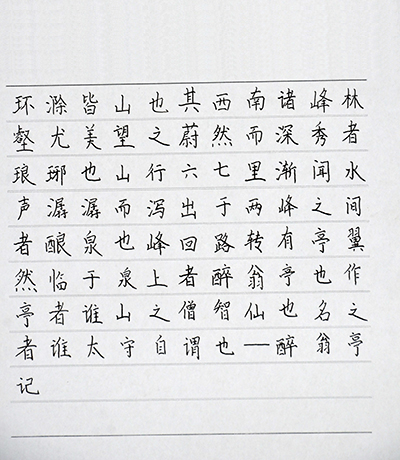 环滁皆山也其西南诸峰林
壑尤美望之蔚然而深秀者
琅琊也山行六七里渐闻水
声潺潺而泻出于两峰之间
者酿泉也峰回路转有亭翼
然临于泉上者醉翁亭也作
亭者谁山之僧智仙也名之
者谁太守自谓也——醉翁亭
记